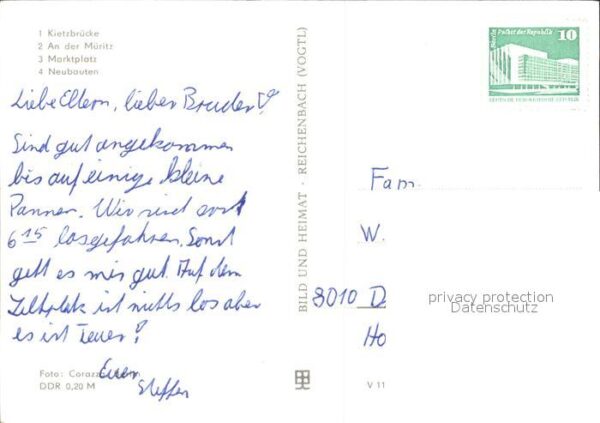 1 Kietzbrücke
2 An der Müritz
3 Marktplatz
4 Neubauten
Liebe Eltern, lieber Bruder!
Sind gut angekommen
bis auf einige kleine
Pannen. Wir sind erst
6 15 losgefahren. Sonst
geht es mir gut. Auf dem
Zeltplatz ist nichts los aber
es ist Teuer!
Euer
Steffen
Foto: Corazza
DDR 0,20 M
BILD UND HEIMAT · REICHENBACH (VOGTL)
V 11
Berlin Palast der Republik 10
DEUTSCHE DEMOKRATISCHE REPUBLIK
Fam.
W.
8010 D
Ho
privacy protection
Datenschutz